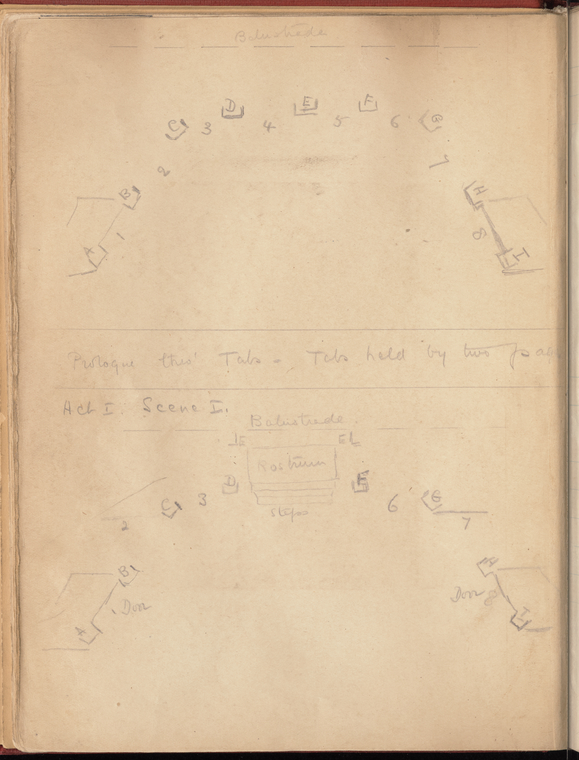 Balustrade
D E F
C 3 4 5 6 G
2 7
B H
A 1 8 I
Prologue thro' Tabs - Tabs held by two pages
Act I. Scene I.
Balustrade.
E E
Rostrum
D F
C 3 6 G
2 Steps 7
B H
1 Door Door 8
A I